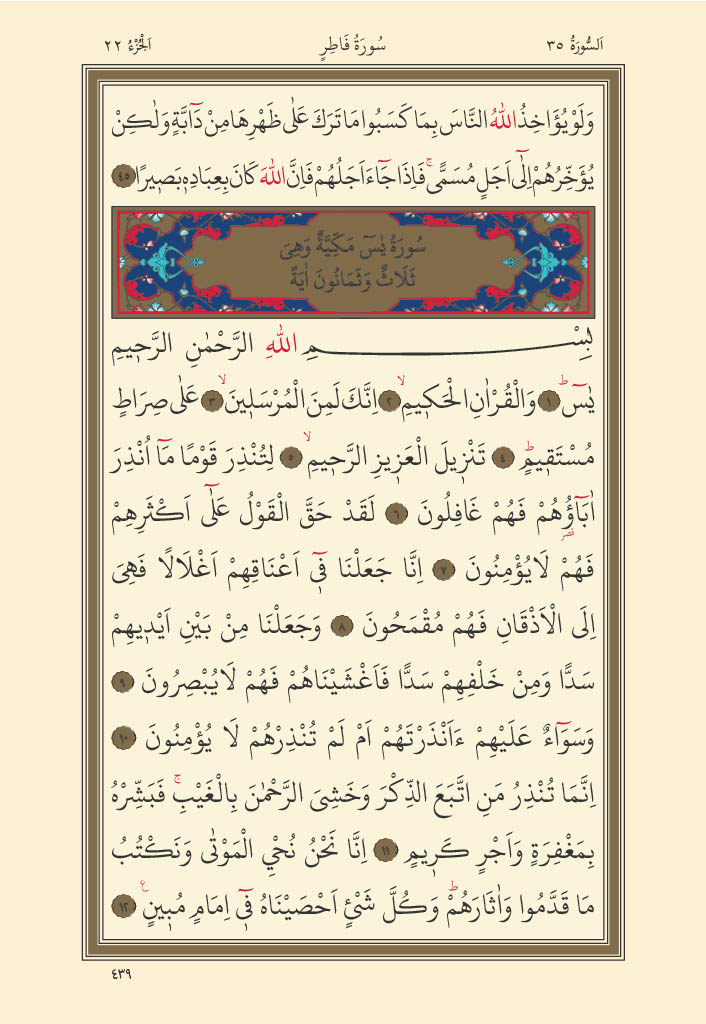 اَلسُّورَةُ ٣٥ سُورَةُ فَاطِرٍ اَلْجُزْءُ ٢٢
وَلَوْ يُؤَاخِذُ اللّٰهُ النَّاسَ بِمَا كَسَبُوا مَا تَرَكَ عَلٰى ظَهْرِهَا مِنْ دَٓابَّةٍ وَلٰكِنْ
يُؤَخِّرُهُمْ اِلٰٓى اَجَلٍ مُسَمًّىۚ فَاِذَا جَٓاءَ اَجَلُهُمْ فَاِنَّ اللّٰهَ كَانَ بِعِبَادِه۪ بَص۪يرًا ٤٥
سُورَةُ يٰسٓ مَكِّيَّةٌ وَهِىَ
ثَلَاثٌ وَثَمَانُونَ اٰيَةً
بِسْمِ اللّٰهِ الرَّحْمٰنِ الرَّح۪يمِ
يٰسٓۜ ١ وَالْقُرْاٰنِ الْحَك۪يمِۙ ٢ اِنَّكَ لَمِنَ الْمُرْسَل۪ينَۙ ٣ عَلٰى صِرَاطٍ
مُسْتَق۪يمٍۜ ٤ تَنْز۪يلَ الْعَز۪يزِ الرَّح۪يمِۙ ٥ لِتُنْذِرَ قَوْمًا مَٓا اُنْذِرَ
اٰبَٓاؤُ۬هُمْ فَهُمْ غَافِلُونَ ٦ لَقَدْ حَقَّ الْقَوْلُ عَلٰٓى اَكْثَرِهِمْ
فَهُمْ لَا يُؤْمِنُونَ ٧ اِنَّا جَعَلْنَا ف۪ٓى اَعْنَاقِهِمْ اَغْلَالًا فَهِىَ
اِلَى الْاَذْقَانِ فَهُمْ مُقْمَحُونَ ٨ وَجَعَلْنَا مِنْ بَيْنِ اَيْد۪يهِمْ
سَدًّا وَمِنْ خَلْفِهِمْ سَدًّا فَاَغْشَيْنَاهُمْ فَهُمْ لَا يُبْصِرُونَ ٩
وَسَوَٓاءٌ عَلَيْهِمْ ءَاَنْذَرْتَهُمْ اَمْ لَمْ تُنْذِرْهُمْ لَا يُؤْمِنُونَ ١٠
اِنَّمَا تُنْذِرُ مَنِ اتَّبَعَ الذِّكْرَ وَخَشِىَ الرَّحْمٰنَ بِالْغَيْبِۚ فَبَشِّرْهُ
بِمَغْفِرَةٍ وَاَجْرٍ كَر۪يمٍ ١١ اِنَّا نَحْنُ نُحْيِ الْمَوْتٰى وَنَكْتُبُ
مَا قَدَّمُوا وَاٰثَارَهُمْۜ وَكُلَّ شَىْءٍ اَحْصَيْنَاهُ ف۪ٓى اِمَامٍ مُب۪ينٍ۟ ١٢
٤٣٩